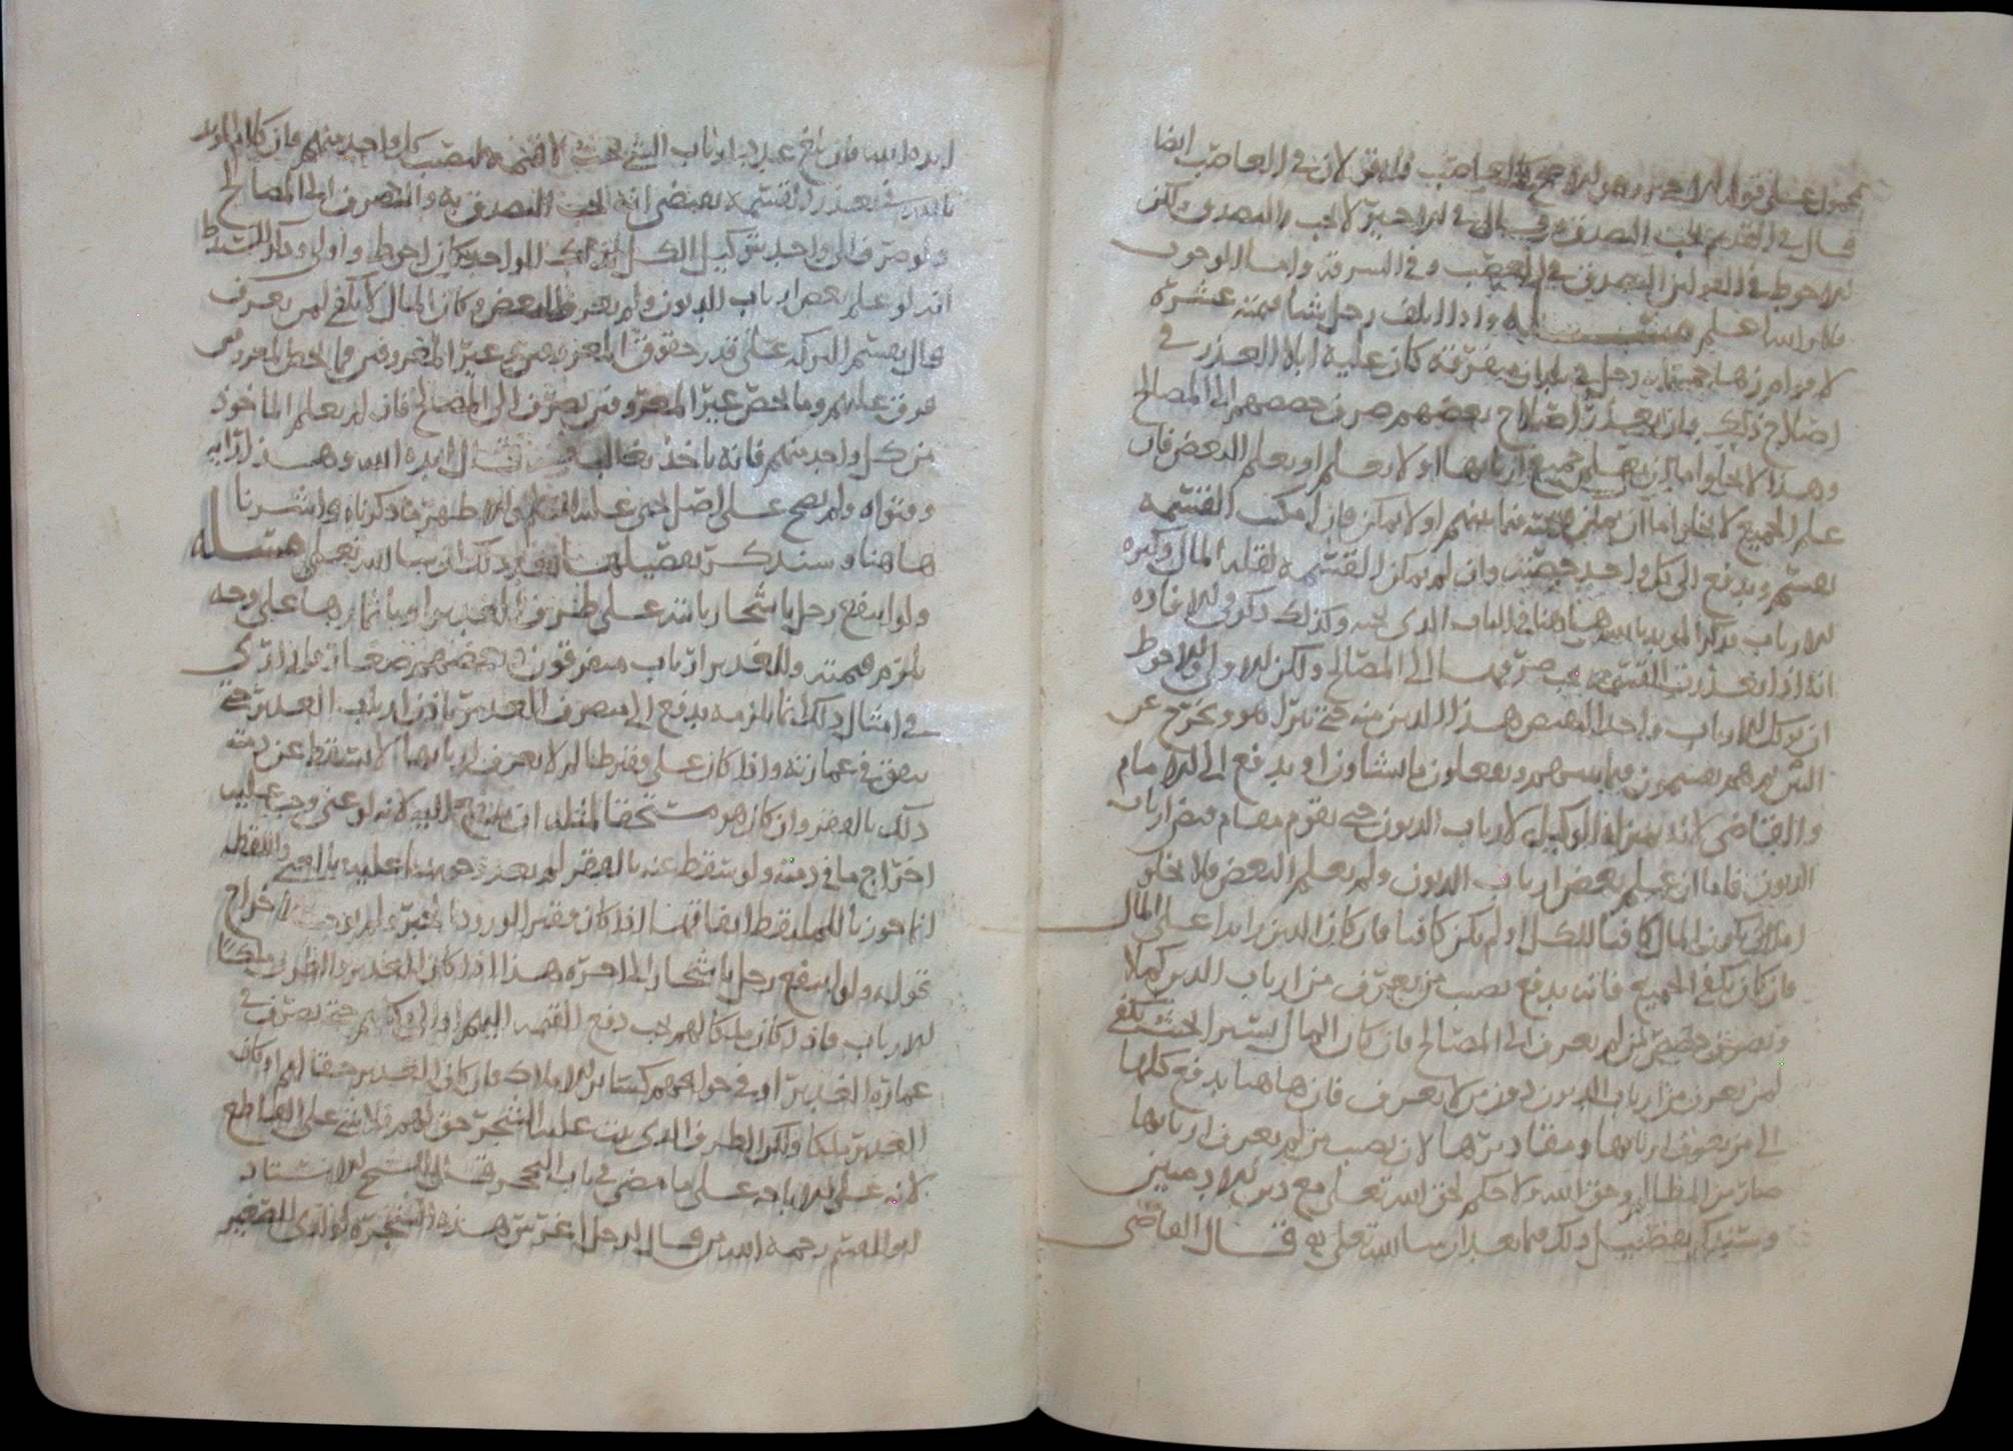 محمول على قوله الاخير وهو الاصح في الغاصب فلا فرق لان في الغاصب ايضا
قال في القديم يجب التصدق وقال في الاخير لا يجب التصدق ولكن
الاحوط في القولين التصدق في الغصب وفي السرقة واما الوجوب
فلا والله اعلم مسئلة واذا اتلف رجل شيا قيمته عشرة
لاقوام رجل في بلدان متفرقة كان عليه ابلاء العذر في
اصلاح ذلك فان تعذر اصلاح بعضهم صرف حصصهم الى المصالح
وهذا لا يخلوا اما ان يعلم جميع اربابها او لا يعلم او يعلم البعض فان
علم الجميع لا يخلوا اما ان يمكن قسمته فيما بينهم او لا يمكن فان امكنت القسمة
يقسم ويدفع الى كل واحد حصته وان لم يمكن القسمة لقلة المال وكثرة
الارباب فذكر المويد بالله هاهنا في الباب الذي وكذلك ذكر في الافادة
انه اذا تعذرت القسمة يجب صرفها الى المصالح ولكن الاولى والاحوط
ان يوكل الارباب واحدا لقبض هذا الدين منه حتى تبرا هو ويخرج عن
ثم هم يقسمون فيما بينهم ويفعلون ما يشاون او يدفع الى الامام
والقاضي لانه بمنزلة الوكيل لارباب الديون حتى يقوم مقام قبض ارباب
الديون فاما ان علم بعض ارباب الديون ولم يعلم البعض فلا يخلو
اما ان يكون المال كافيا للكل او لم يكن كافيا فان كان الدين زايدا على المال
فان كان يكفي الجميع فانه يدفع نصيب من يعرف من ارباب الدين كملا
ويصرف حصص من لم يعرف الى المصالح فان كان المال يسيرا بحيث يكفي
لمن يعرف من ارباب الديون دون من لا يعرف فان هاهنا يدفع كلها
الى من يعرف اربابها ومقاديرها لان نصيب من لم يعرف اربابها
صار من المظالم وحق الله ولا حكم لحق الله تعلى مع دين الادميين
وسنذكر تفصيل ذلك فيما بعد ان شا الله تعلى قال القاضي
ايده الله فان بلغ عدد ارباب الشي بحيث لا قيمة لنصيب كل واحد منهم فان كلام المويد
بالله في تعذر القسمة يقتضي انه يجب التصدق به والتصرف الى المصالح
ولو صرف الى واحد بتوكيل الكل لذلك الواحد كان احوط واولى وذكر السيد ط
انه لو علم بعض ارباب الديون ولم يعرف البعض وكان المال لا يكفي لمن يعرف
قال يقسم التركة على قدر حقوق المعروفين وغير المعروفين فما يخص المعروفين
فرق عليهم وما يخص غير المعروفين يصرف الى المصالح فان لم يعلم الماخوذ
من كل واحد منهم فانه ياخذ بغالب قال ايده الله وهذا رايه
وفتواه ولم يصح على اصل يحيى عليه السلم والاظهر ما ذكرناه واشرنا
هاهنا وسنذكر تفصيلها ذلك ان شا الله تعلى مسئلة
ولو انتفع رجل باشجار نابتة على طرف الغدير او باثمارها على وجه
يلزم قيمته وللغدير ارباب متفرقون بعضهم صغار فالذي ارى
في امثال ذلك انما يلزمه يدفع الى متصرف الغدير باذن ارباب الغدير حتى
ينفق في عمارته واذا كان على فقير مظالم لا يعرف اربابها لا يسقط عن ذمته
ذلك بالفقر وان كان هو مستحقا لمثله ان الغير اليه لانه لو غني وجب عليه
اخراج ما في ذمته ولو سقط عنه بالفقر لم يعد وجوبها عليه بالغنى واللقطة
انما جوزنا للملتقط الانتفاع بها اذا كان فقيرا لورود الخبر ولم الاخراج
قوله ولو انتفع رجل باشجار الى اخره هذا اذا كان الغدير والطرف ملكا
للارباب فاذا كان ملكا لهم يجب دفع القيمة اليهم او الى وكيلهم حتى يصرف في
عمارة الغدير او في حوايجهم كساير الاملاك فان كان الغدير حقا لهم او كان
الغدير ملكا ولكن الطرف الذي نبت عليه الشجر حق لهم فلا شي على القاطع
لانه على الاباحة على ما مضى في باب التحجر قال الشيخ الاستاد
ابو القسم رحمه الله من قال لرجل اغرس هذه الشجرة لولدي الصغير